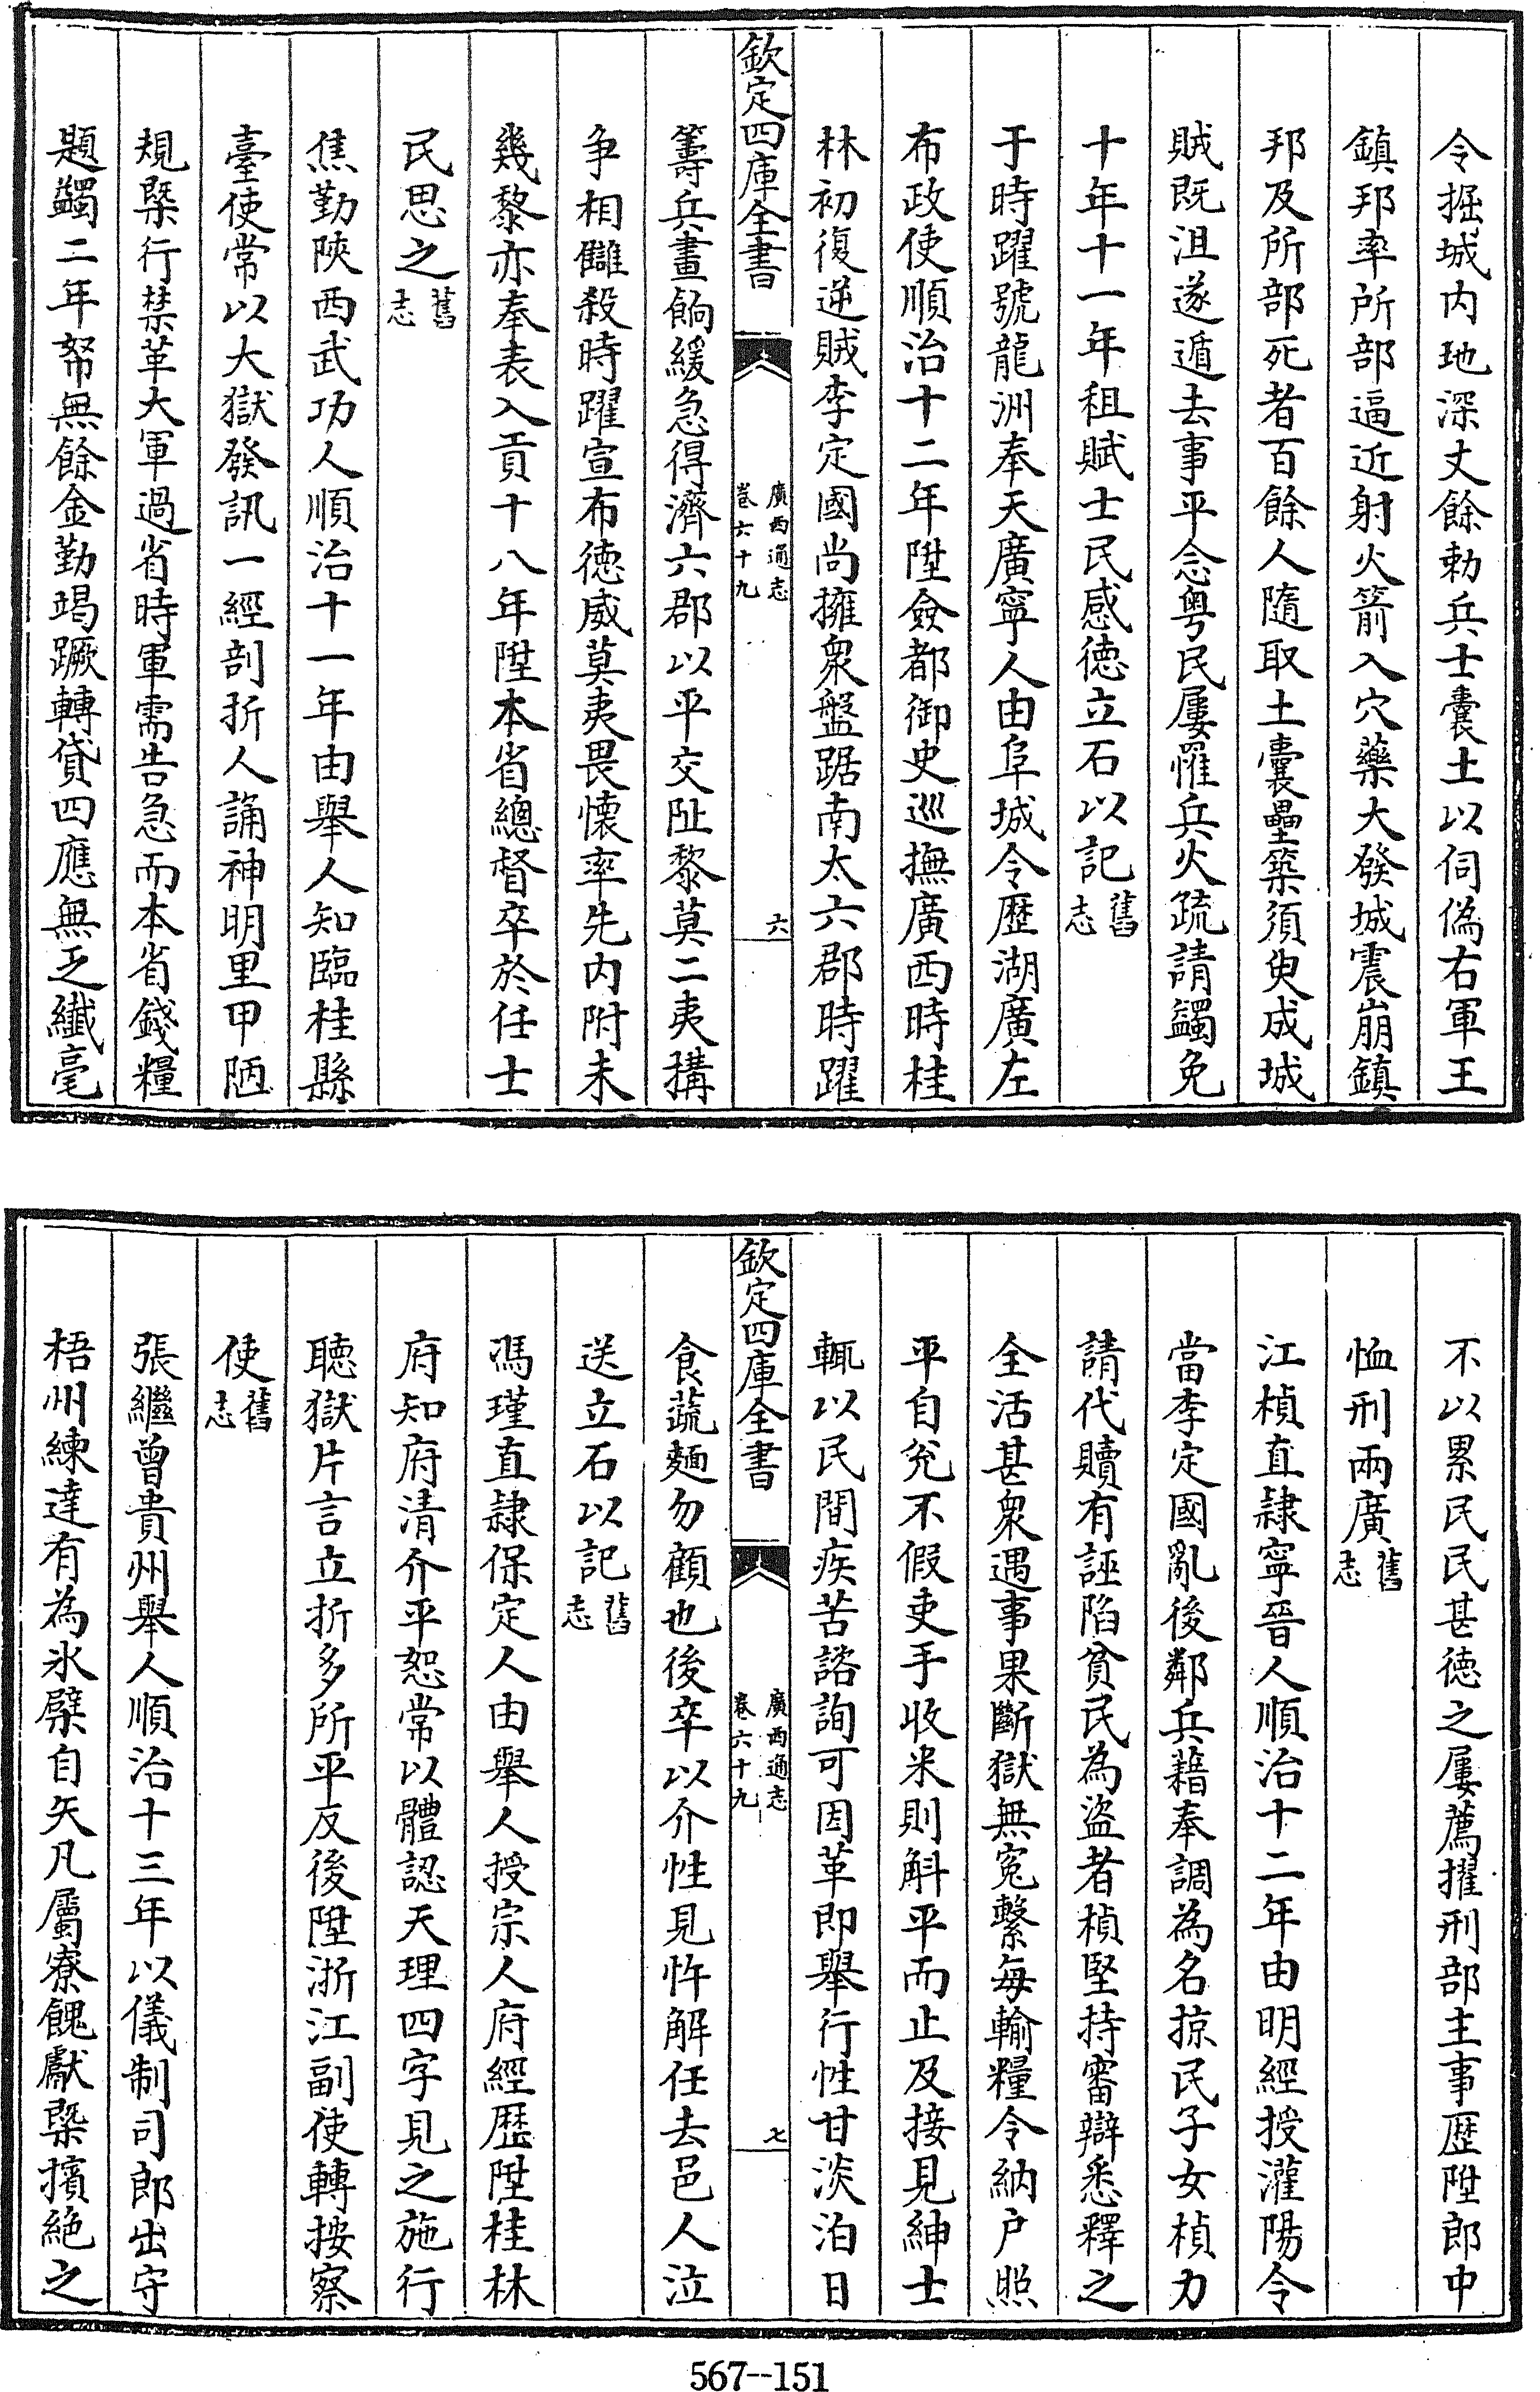 令掘城内地深丈餘勅兵士囊土以伺偽右軍王
鎮邦率所部逼近射火箭入穴藥大發城震崩鎮
邦及所部死者百餘人隨取土囊壘築須臾成城
賊既沮遂遁去事平念粤民屢罹兵火疏請蠲免
十年十一年租賦士民感德立石以記舊志
于時躍號龍洲奉天廣寧人由阜城令歴湖廣左
布政使順治十二年陞僉都御史巡撫廣西時桂
林初復逆賊李定國尚擁衆盤踞南太六郡時躍
欽定四庫全書
廣西通志
卷六十九
六
籌兵畫餉緩急得濟六郡以平交阯黎莫二夷搆
争相讎殺時躍宣布德威莫夷畏懷率先内附未
幾黎亦奉表入貢十八年陞本省總督卒於任士
民思之舊志
焦勤陜西武功人順治十一年由舉人知臨桂縣
臺使常以大獄發訊一經剖折人誦神明里甲陋
規槩行禁革大軍過省時軍需告急而本省錢糧
題蠲二年帑無餘金勤竭蹶轉貸四應無乏纖毫
不以累民民甚徳之屢薦擢刑部主事歴陞郎中
恤刑兩廣舊志
江楨直隷寧晉人順治十二年由明經授灌陽令
當李定國亂後鄰兵藉奉調為名掠民子女楨力
請代贖有誣陷貧民為盗者楨堅持審辯悉釋之
全活甚衆遇事果斷獄無寃繫每輸糧令納户照
平自兊不假吏手收米則斛平而止及接見紳士
輒以民間疾苦諮詢可因革即舉行性甘淡泊日
欽定四庫全書
廣西通志
卷六十九
七
食蔬麵勿顧也後卒以介性見忤解任去邑人泣
送立石以記舊志
馮瑾直隷保定人由舉人授宗人府經歴陞桂林
府知府清介平恕常以體認天理四字見之施行
聴獄片言立折多所平反後陞浙江副使轉按察
使舊志
張繼曾貴州舉人順治十三年以儀制司郎出守
梧州練達有為氷檗自矢凡屬寮餽獻槩擯絶之
567--151